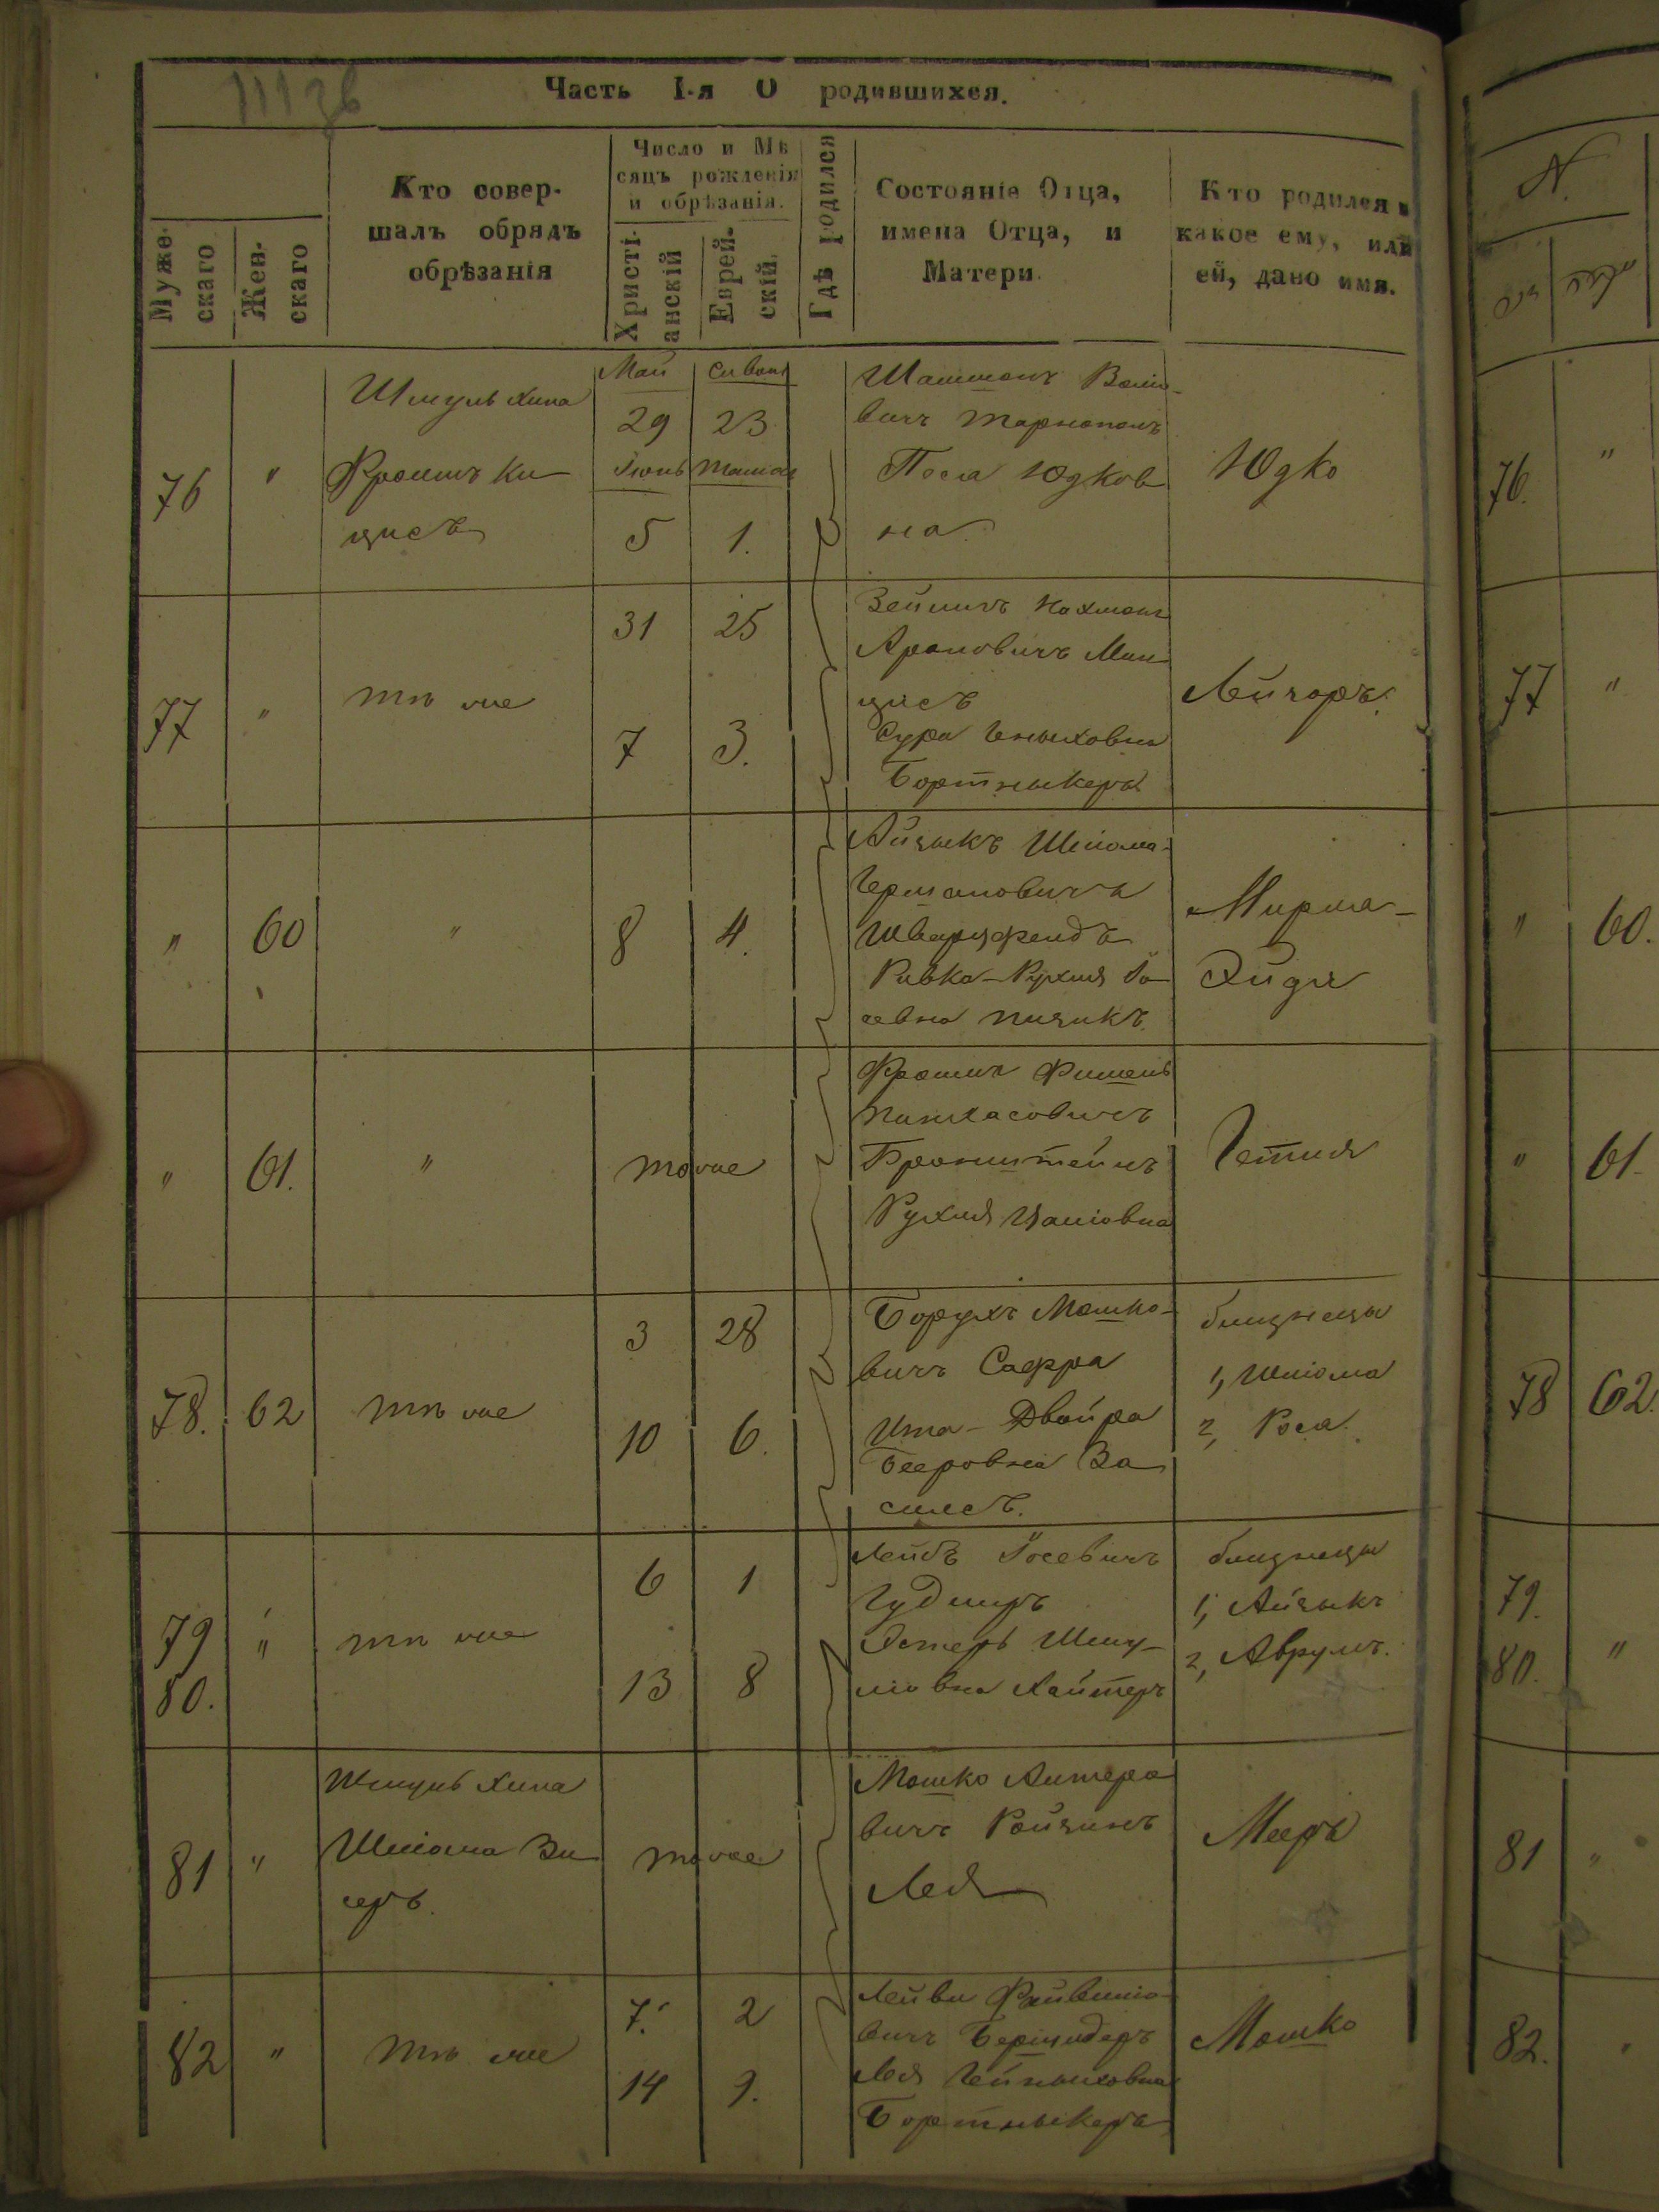 Часть I-я О родившихся.
Муже-
скаго
Жен-
скаго
Кто совер-
шалъ обрядъ
обрѣзанія
Число и Мѣ
сяцъ рожденія
и обрѣзанія.
Христі-
анскій
Еврей-
скій
Гдѣ родился
Состояніе Отца,
имена Отца, и
Матери
Кто родился и
какое ему, или
ей, дано имя.
76 "
Шмуль Хила
Фроимъ Ки
цисъ
Май Сиванъ
29 23
Іюнь Тамоз
5 1.
вичъ Тарнополь
Песа Юдков
на
Юдко
77 "
тѣ же
31 25
7 3.
Зейликъ Нахманъ
Ароновичъ Ман
цисъ
Сура
Бортныкеръ
Лейзоръ.
" 60 "
8 4.
Айзыкъ Шлома
Германовичъ
Шварцфельдъ
Ривка-Рухля Іо
севна Пизикъ
Мирля-
Эйдя
" 61. "
тоже
Фроимъ Фишель
Пинхасовичъ
Бронштейнъ
Рухля
Гетля
78. 62
тѣ же
3 28
10 6.
Борухъ Мошко-
вичъ Сафра
Ита-Двойра
Бееровна Ва
силесъ.
близнецы
1, Шлома
2, Роса.
79 "
80.
тѣ же
6 1
13 8
Лейбъ Іосевичъ
Гудзиръ
Эстеръ Шму-
ліовна Хайтеръ
близнецы
1, Айзыкъ
2, Аврумъ.
81 "
Шмуль Хила
Шлома Ви
серъ.
тоже
Мошко Алтеро
вичъ Ройзинъ
Лея
Мееръ
82 "
тѣ же
7. 2
14 9.
Лейви Файвишіо
вичъ
Лея Гейныховна
Бортныкеръ
Мошко
76. "
77 "
" 60.
" 61.
78 62.
79.
80. "
81 "
82. "